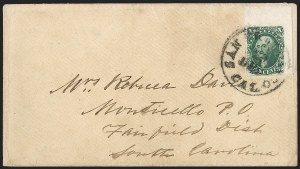 SAN
CAL.
CENTS
Mrs Rebecca Dav
Monticello P.O.
Fairfield Dist
South Carolina